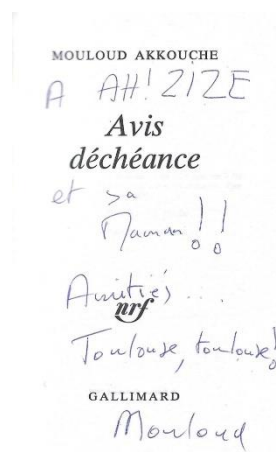 MOULOUD AKKOUCHE
A AH! ZIZE
Avis
déchéance
et sa
Maman!!
Amitiés...
nrf
Toulouse, toulouse!
GALLIMARD
Mouloud